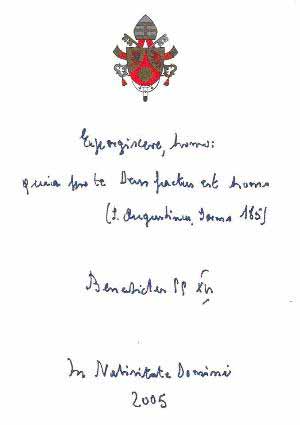 Expergiscere, homo:
quia pro te Deus factus est homo
(S. Augustinus, Sermo 185)
Benedictus PP XVI
In Nativitate Domini
2005